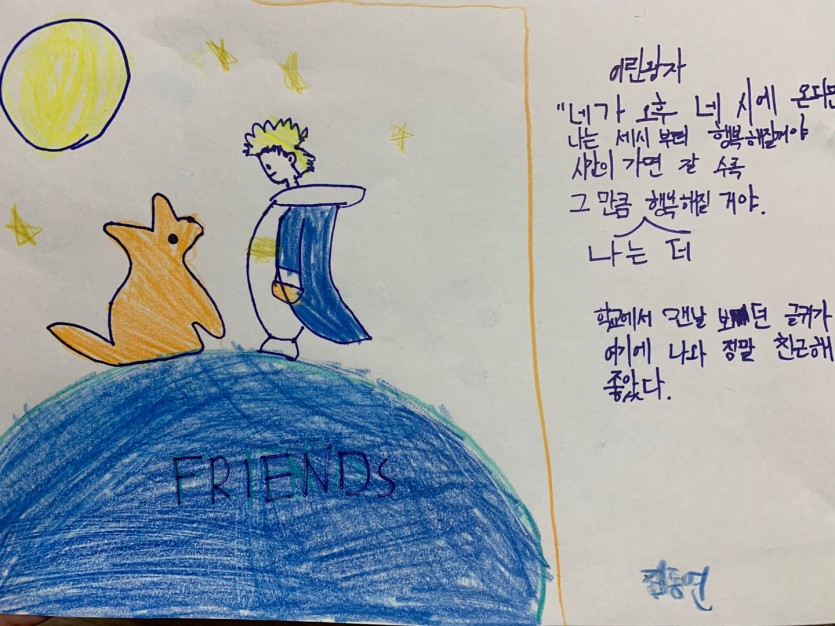 어린왕자
"네가 오후 네 시에 온다면
나는 세시 부터 행복해질거야
시간이 가면 갈 수록
그 만큼 행복해질 거야.
나는 더
학교에서 맨날 보던 글귀가
여기에 나와 정말 친근해
좋았다.
FRIENDS
김동연